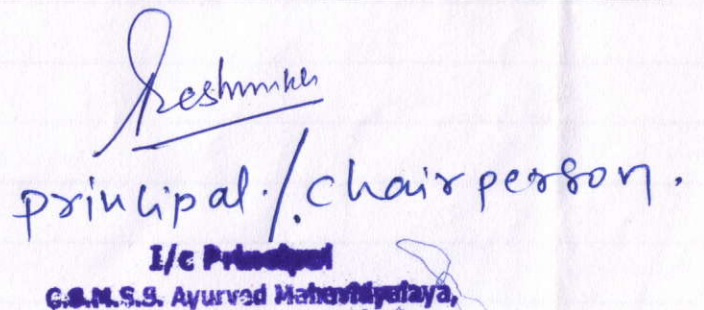 principal./.chairperson.
I/c Principal
C.S.M.S.S. Ayurved Mahavidyalaya,